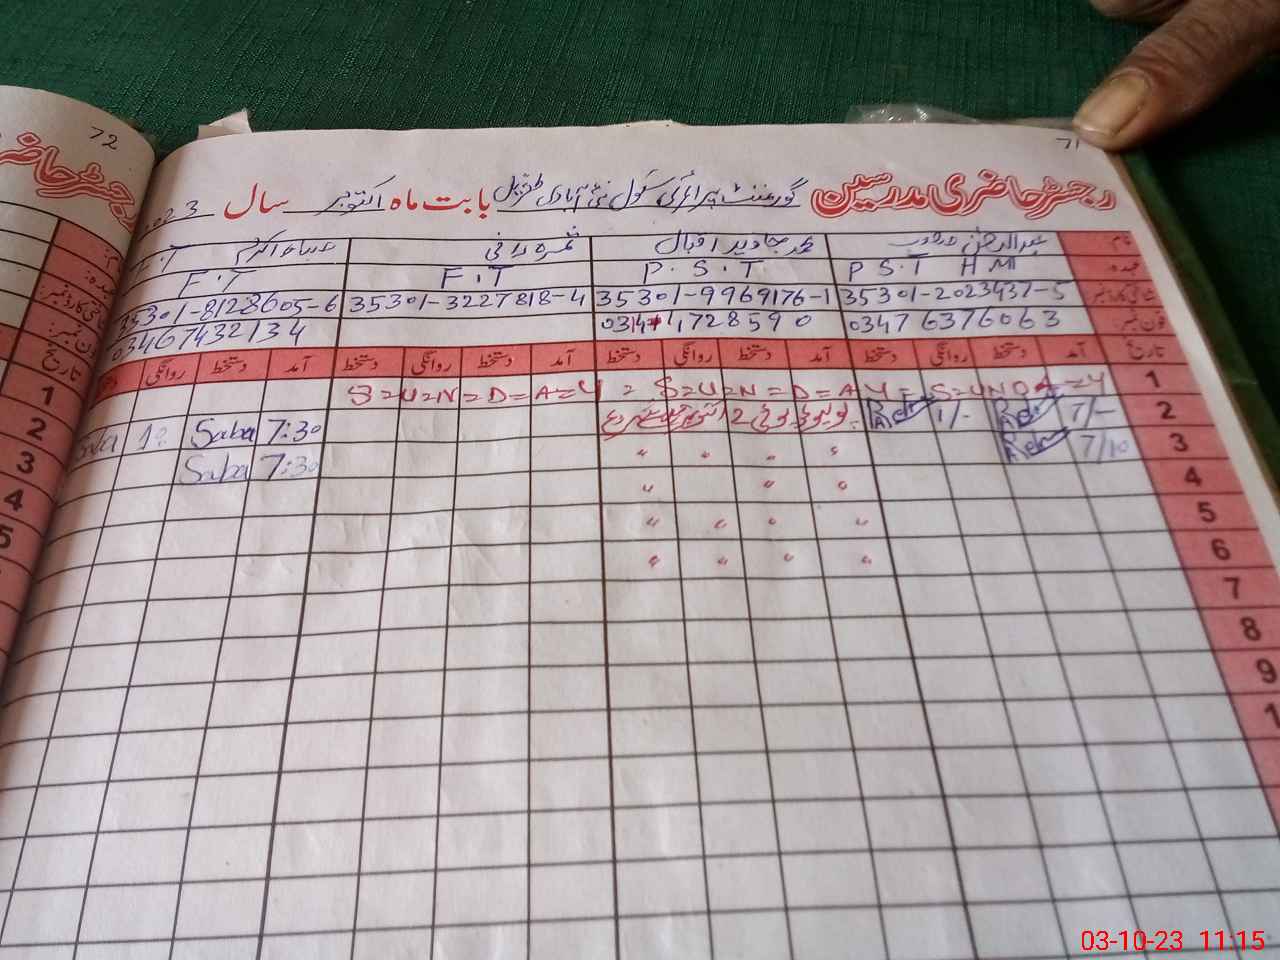 72
71
رجسٹر حاضری مدرسین گورنمنٹ پرائمری سکول نئی آبادی بابت ماہ اکتوبر سال 2023
رجسٹر حاضر
نام عبدالرحمٰن محمد جاوید اقبال صباء اکرم
عہدہ P S.T HM P.S.T F.T F.T
35301-2023437-5 35301-9969176-1 35301-3227818-4 35301-8128605-6
فون نمبر: 03476376063 03467432134
تاریخ آمد دستخط روانگی دستخط آمد دستخط روانگی دستخط آمد دستخط روانگی دستخط آمد دستخط روانگی
1 S=U=N=D=A=Y = S=U=N=D=A Y = S=UNDA=Y
2 7/- 1/- 7:30 Saba
3 7/10 " " " " 7:30 Saba
4 " " "
5 " " " "
6 " " " "
7
8
9
1
1
2
3
4
5
03-10-23 11:15